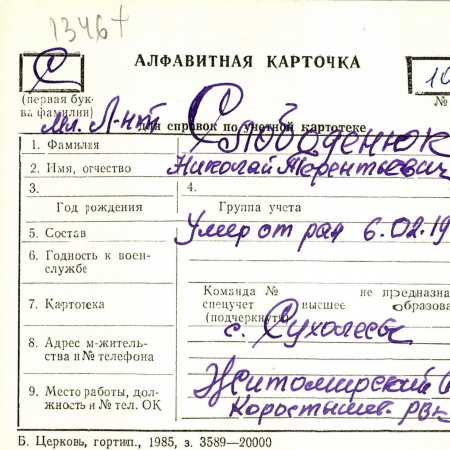 1346+
АЛФАВИТНАЯ КАРТОЧКА
С
10
(первая бук-
ва фамилии)
№
Мл. Л-нт
для справок по учетной картотеке
1. Фамилия Слободенюк
2. Имя, отчество Николай Терентьевич
3. 4.
Год рождения Группа учета
5. Состав Умер от ран 6.02.19
6. Годность к воен-
службе
Команда № не предназна
7. Картотека спецучет высшее образова
(подчеркнуть)
с. Сухолесы
8. Адрес м-жительст-
ва и № телефона
9. Место работы, дол- Житомирский
жность и № тел. ОК Коростышев. рвк
Б. Церковь, гортип., 1985, з. 3589—20000